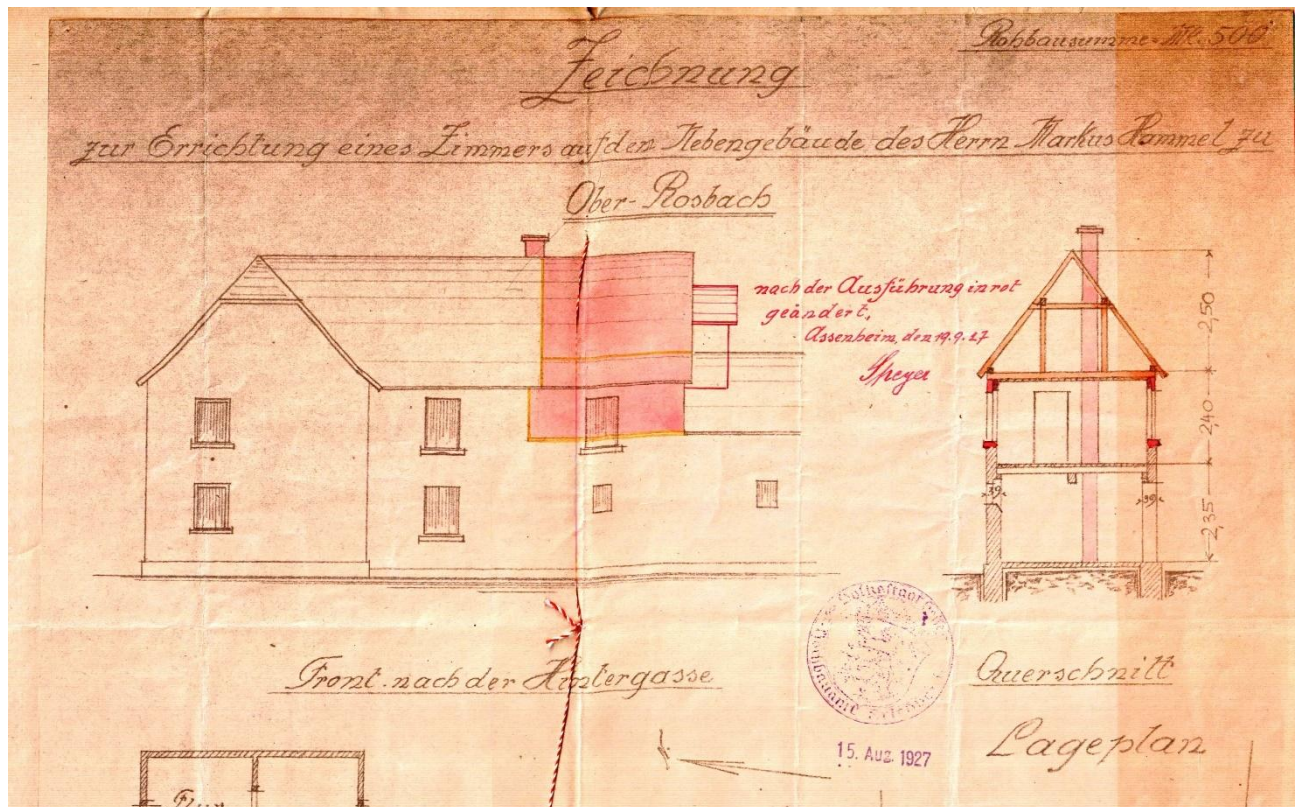 Rohbausumme Mk. 500
Zeichnung
zur Errichtung eines Zimmers auf den Nebengebäude des Herrn Markus Hammel zu
Ober-Rosbach
nach der Ausführung in rot
geändert,
Assenheim, den 19.9.27
Speyer
2,50
2,40
2,35
39
39
Front nach der Hintergasse
Querschnitt
Hochbauamt Friedberg
15. Aug. 1927
Lageplan
Flur